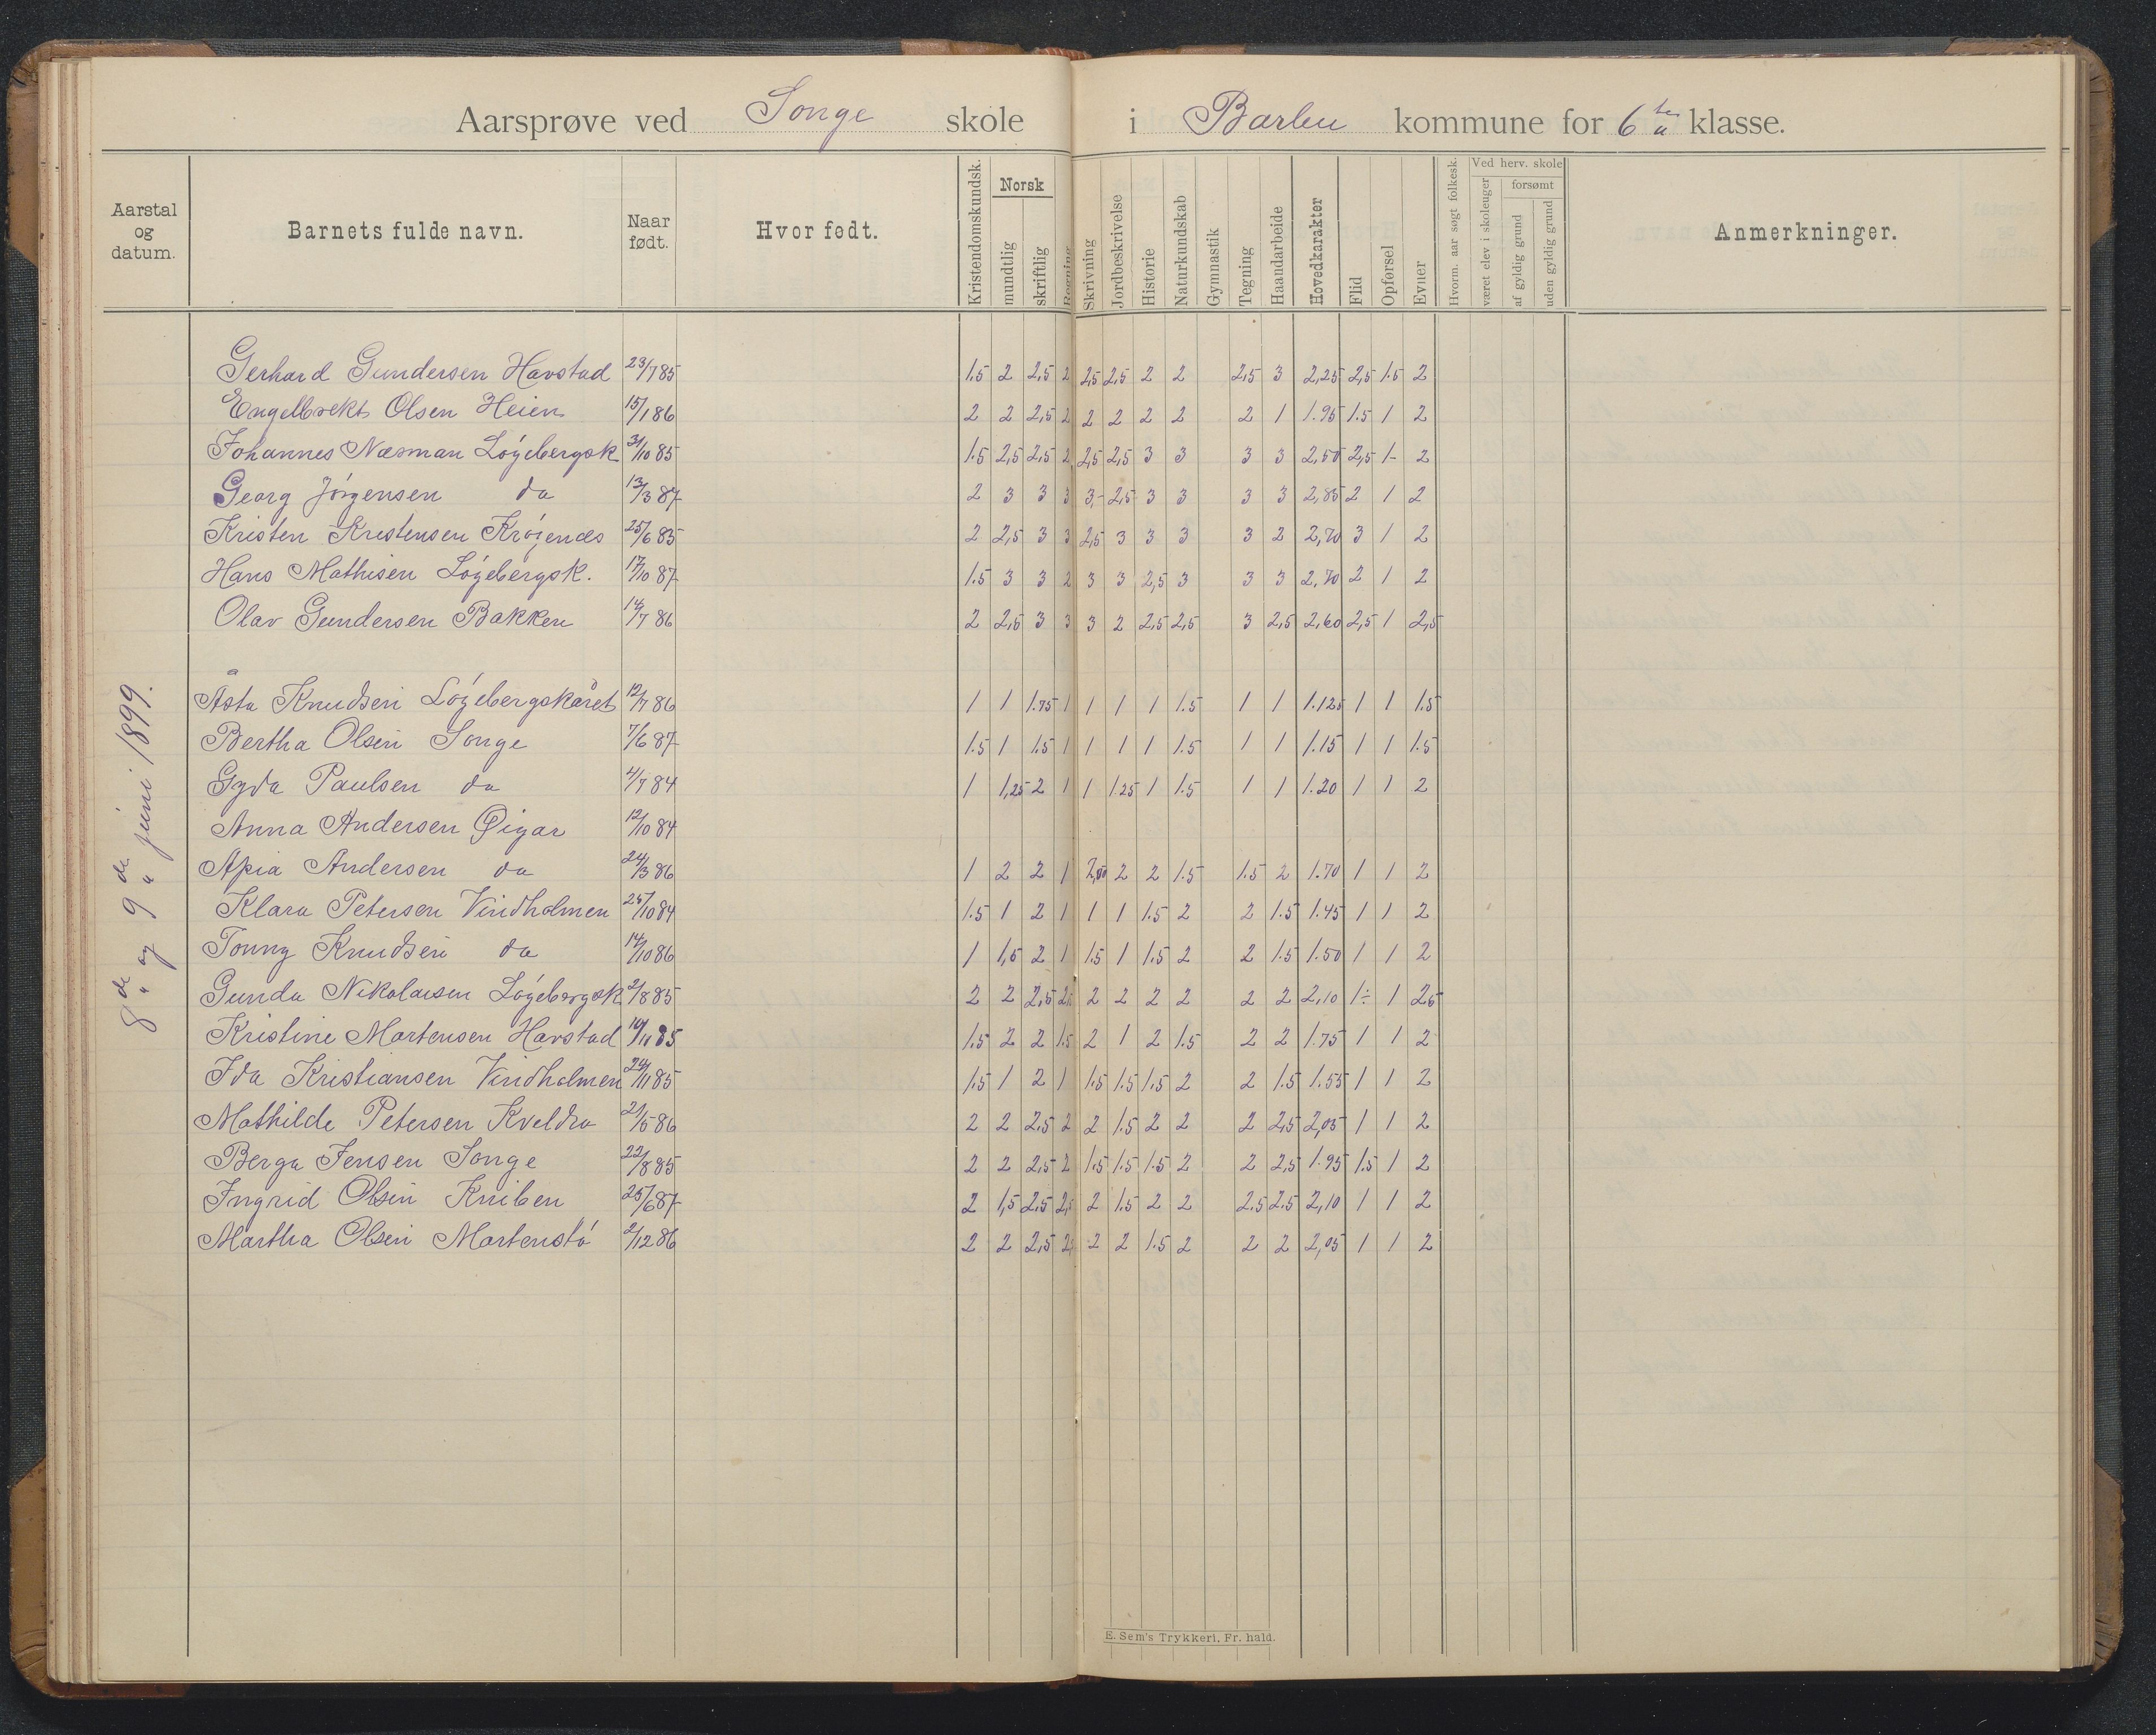 Aarsprøve ved Songe skole i Barbu kommune for 6te klasse.
Aarstal og datum. Barnets fulde navn. Naar født. Hvor født. Kristendomskundsk. Norsk mundtlig skriftlig Regning Skrivning Jordbeskrivelse Historie Naturkundskab Gymnastik Tegning Haandarbeide Hovedkarakter Flid Opførsel Evner Hvorm. aar søgt folkesk. Ved herv. skole været elev i skoleuger forsømt af gyldig grund uden gyldig grund Anmerkninger.
8de og 9de juni 1899.
Gerhard Gundersen Havstad 23/7 85 1.5 2 2,5 2 2,5 2,5 2 2 2,5 3 2,25 2,5 1.5 2
Engelbrekt Olsen Heien 15/1 86 2 2 2,5 2 2 2 2 2 2 1 1.95 1.5 1 2
Johannes Næsman Løgebergsk 31/10 85 1.5 2,5 2,5 2 2,5 2,5 3 3 3 3 2,50 2,5 1- 2
Georg Jørgensen do 13/3 87 2 3 3 3 3- 2,5 3 3 3 3 2,85 2 1 2
Kristen Kristensen Krøgenes 25/6 85 2 2,5 3 3 2,5 3 3 3 3 2 2,70 3 1 2
Hans Mathisen Løgebergsk. 17/10 87 1.5 3 3 2 3 3 2,5 3 3 3 2,70 2 1 2
Olav Gundersen Bakken 14/7 86 2 2,5 3 3 3 2 2,5 2,5 3 2,5 2,60 2,5 1 2,5
Åsta Knudsen Løgebergskaret 12/7 86 1 1 1.75 1 1 1 1 1.5 1 1 1.125 1 1 1.5
Bertha Olsen Songe 7/6 87 1.5 1 1.5 1 1 1 1 1.5 1 1 1.15 1 1 1.5
Gyda Paulsen do 4/7 84 1 1,25 2 1 1 1.25 1 1.5 1 1 1.20 1 1 2
Anna Andersen Øigar 12/10 84
Apia Andersen do 24/3 86 1 2 2 1 2,00 2 2 1.5 1.5 2 1.70 1 1 2
Klara Petersen Vindholmen 25/10 84 1.5 1 2 1 1 1 1.5 2 2 1.5 1.45 1 1 2
Tonny Knudsen do 14/10 86 1 1,5 2 1 1.5 1 1.5 2 2 1.5 1.50 1 1 2
Gunda Nikolaisen Løgebergsk 2/8 85 2 2 2,5 2,5 2 2 2 2 2 2 2,10 1÷ 1 2.5
Kristine Mortensen Havstad 10/11 85 1.5 2 2 1.5 2 1 2 1.5 2 2 1.75 1 1 2
Ida Kristiansen Vindholmen 24/11 85 1.5 1 2 1 1.5 1.5 1.5 2 2 1.5 1.55 1 1 2
Mathilde Petersen Kveldro 21/5 86 2 2 2.5 2 2 1.5 2 2 2 2,5 2,05 1 1 2
Berga Jensen Songe 22/8 85 2 2 2,5 2 1.5 1.5 1.5 2 2 2,5 1.95 1.5 1 2
Ingrid Olsen Kniben 25/6 87 2 1,5 2.5 2,5 2 1.5 2 2 2.5 2.5 2,10 1 1 2
Martha Olsen Mortenstø 2/12 86 2 2 2,5 2, 2 2 1.5 2 2 2 2,05 1 1 2
E. Sem's Trykkeri, Fr. hald.